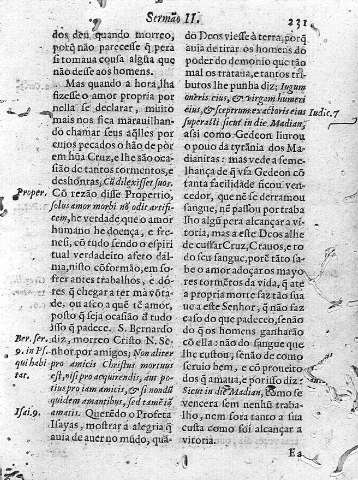 Sermão II. 231
dos deu quando morreo,
porq̃ não parecesse q̃ pera
si tomaua cousa algũa que
não desse aos homens.
Mas quando a hora, lha
fizesse o amor propria por
nella se declarar, muito
mais nos fica marauilhando
chamar seus aq̃lles por
cujos pecados o hão de pòr
em hũa Cruz, e lhe são ocasião
de tantos tormentos, e
deshonras, Cũ dilexisset suos.
Proper. Cõ rezão disse Propertio,
solus amor morbi nõ odit artificem,
he verdade que o amor
humano he doença, e frenesi,
cõ tudo sendo o espiritual
verdadeiro afeto dalma,
nisto cõformão, em sofrer
antes trabalhos, e dòres
q̃ chegara ter ma võtade,
ou asco a quẽ tẽ amor,
posto q̃ seja ocasiaõ d̃ tudo
Ber. ser. isso q̃ padece. S. Bernardo
diz, morreo Cristo N. Senhor
9. in Ps. por amigos, Non aliter
qui habitat. pro amicis Christus mortuus
est, nisi pro acquirendis, aut potius
pro iam amicis, & si nondũ
quidem amantibus, sed tamẽ iã
Isai. 9. amatis. Querẽdo o Profeta
Isayas, mostrar a alegria q̃
auia de auer no mũdo, quãdo
Deos viesse à terra, porq̃
auia de tirar os homens do
poder do demonio que tão
mal os trataua, e tantos tributos
lhe punha diz; Iugum
oneris eius, & virgam humeri
eius, & sceptrum exactoris eius Iudic. 7
superasti sicut in die Madian,
assi como Gedeon liurou
o pouo da tyrãnia dos Madianitas:
mas vede a semelhança
de q̃ vsa Gedeon cõ
tanta facilidade ficou vencedor,
que nẽ se derramou
sangue, nẽ passou por trabalho
algũ pera alcançar a vitoria,
mas a este Deos alhe
de cussar Cruz, Crauos, e todo
seu sangue, porẽ tãto sabe
o amor adoçar os mayores
tormẽtos da vida, q̃ atè
a propria morte faz tão sua
ue a este Senhor, q̃ não faz
caso do que padeceo, senão
do q̃ os homens ganharão
cõ ella: não do sangue que
lhe custou, senão de como
seruio bem, e cõ proueito
dos q̃ amaua, e por isso diz:
Sicut in die Madian, como se
vencera sem nenhũ trabalho,
nem fora tanto a sua
custa como foi alcançar a
vitoria.